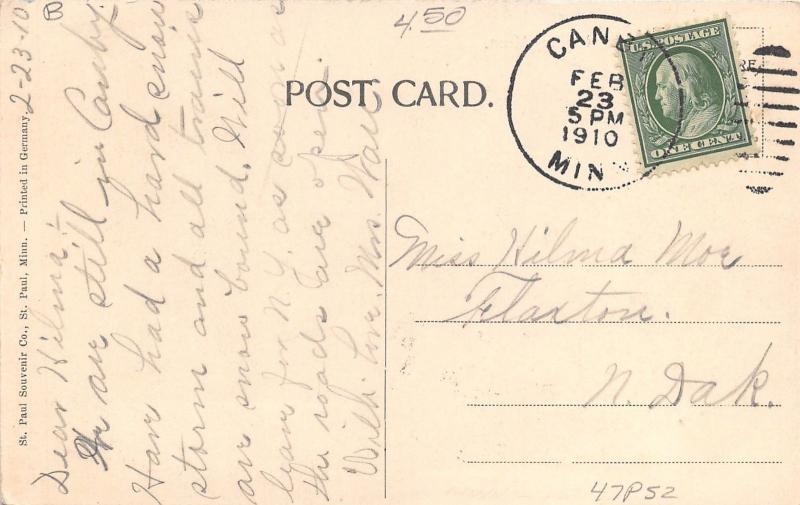 B
4.50
POST CARD.
CANBY
FEB
23
5 PM
1910
MINN
U.S. POSTAGE
ONE CENT
RE
2-23-10
Dear Hilma:-
We are still in Canby.
Have had a hard snow
storm and all trains
are snow bound. Will
leave for N.Y. as soon as
the roads are open.
With love. Mrs. Wall
Miss Hilma Moe
Flaxton.
N. Dak.
47P52
St. Paul Souvenir Co., St. Paul, Minn. — Printed in Germany.